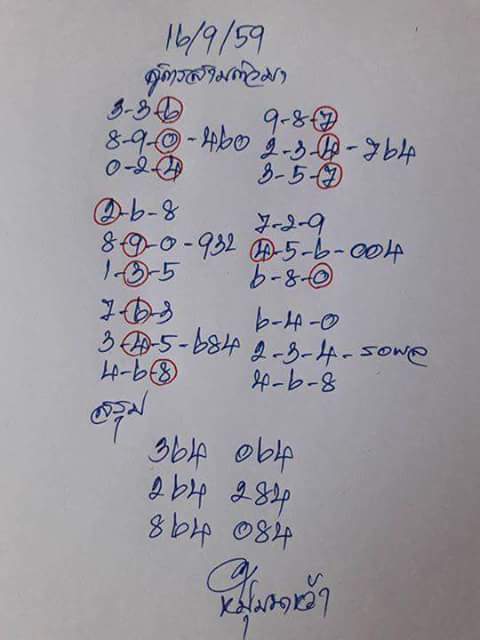 16/9/59
สูตรสามตัวมา
3-3-6
8-9-0-460
0-2-4
9-8-7
2-3-4-764
3-5-7
2-6-8
8-9-0-932
1-3-5
7-2-9
4-5-6-004
6-8-0
7-6-3
3-4-5-684
4-6-8
6-4-0
2-3-4-รอผล
4-6-8
สรุป
364 064
264 284
864 084